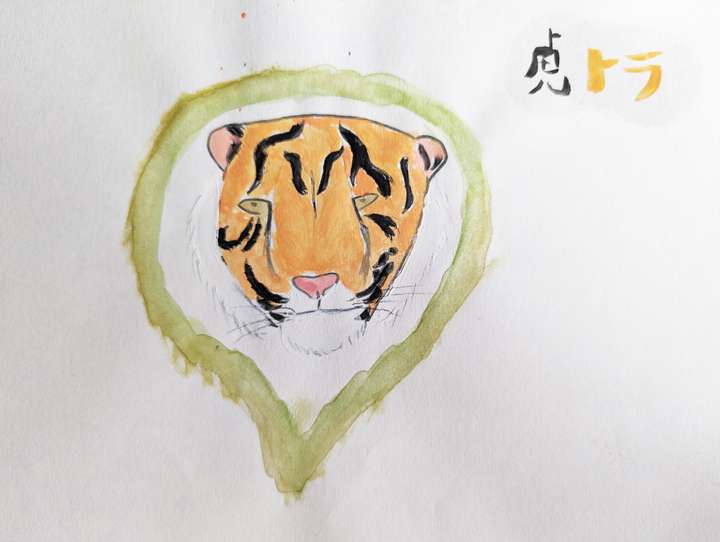 虎トラ